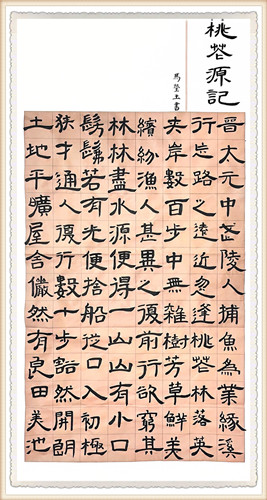 桃花源記
馬瑩玉書
晋太元中武陵人捕魚為業緣溪
行忘路之遠近忽逢桃花林落英
夾岸數百步中無雜樹芳草鮮美
繽紛漁人甚異之復前行欲窮其
林林盡水源便得一山山有小口
髣髴若有光便捨船從口入初極
狹才通人復行數十步豁然開朗
土地平曠屋舍儼然有良田美池